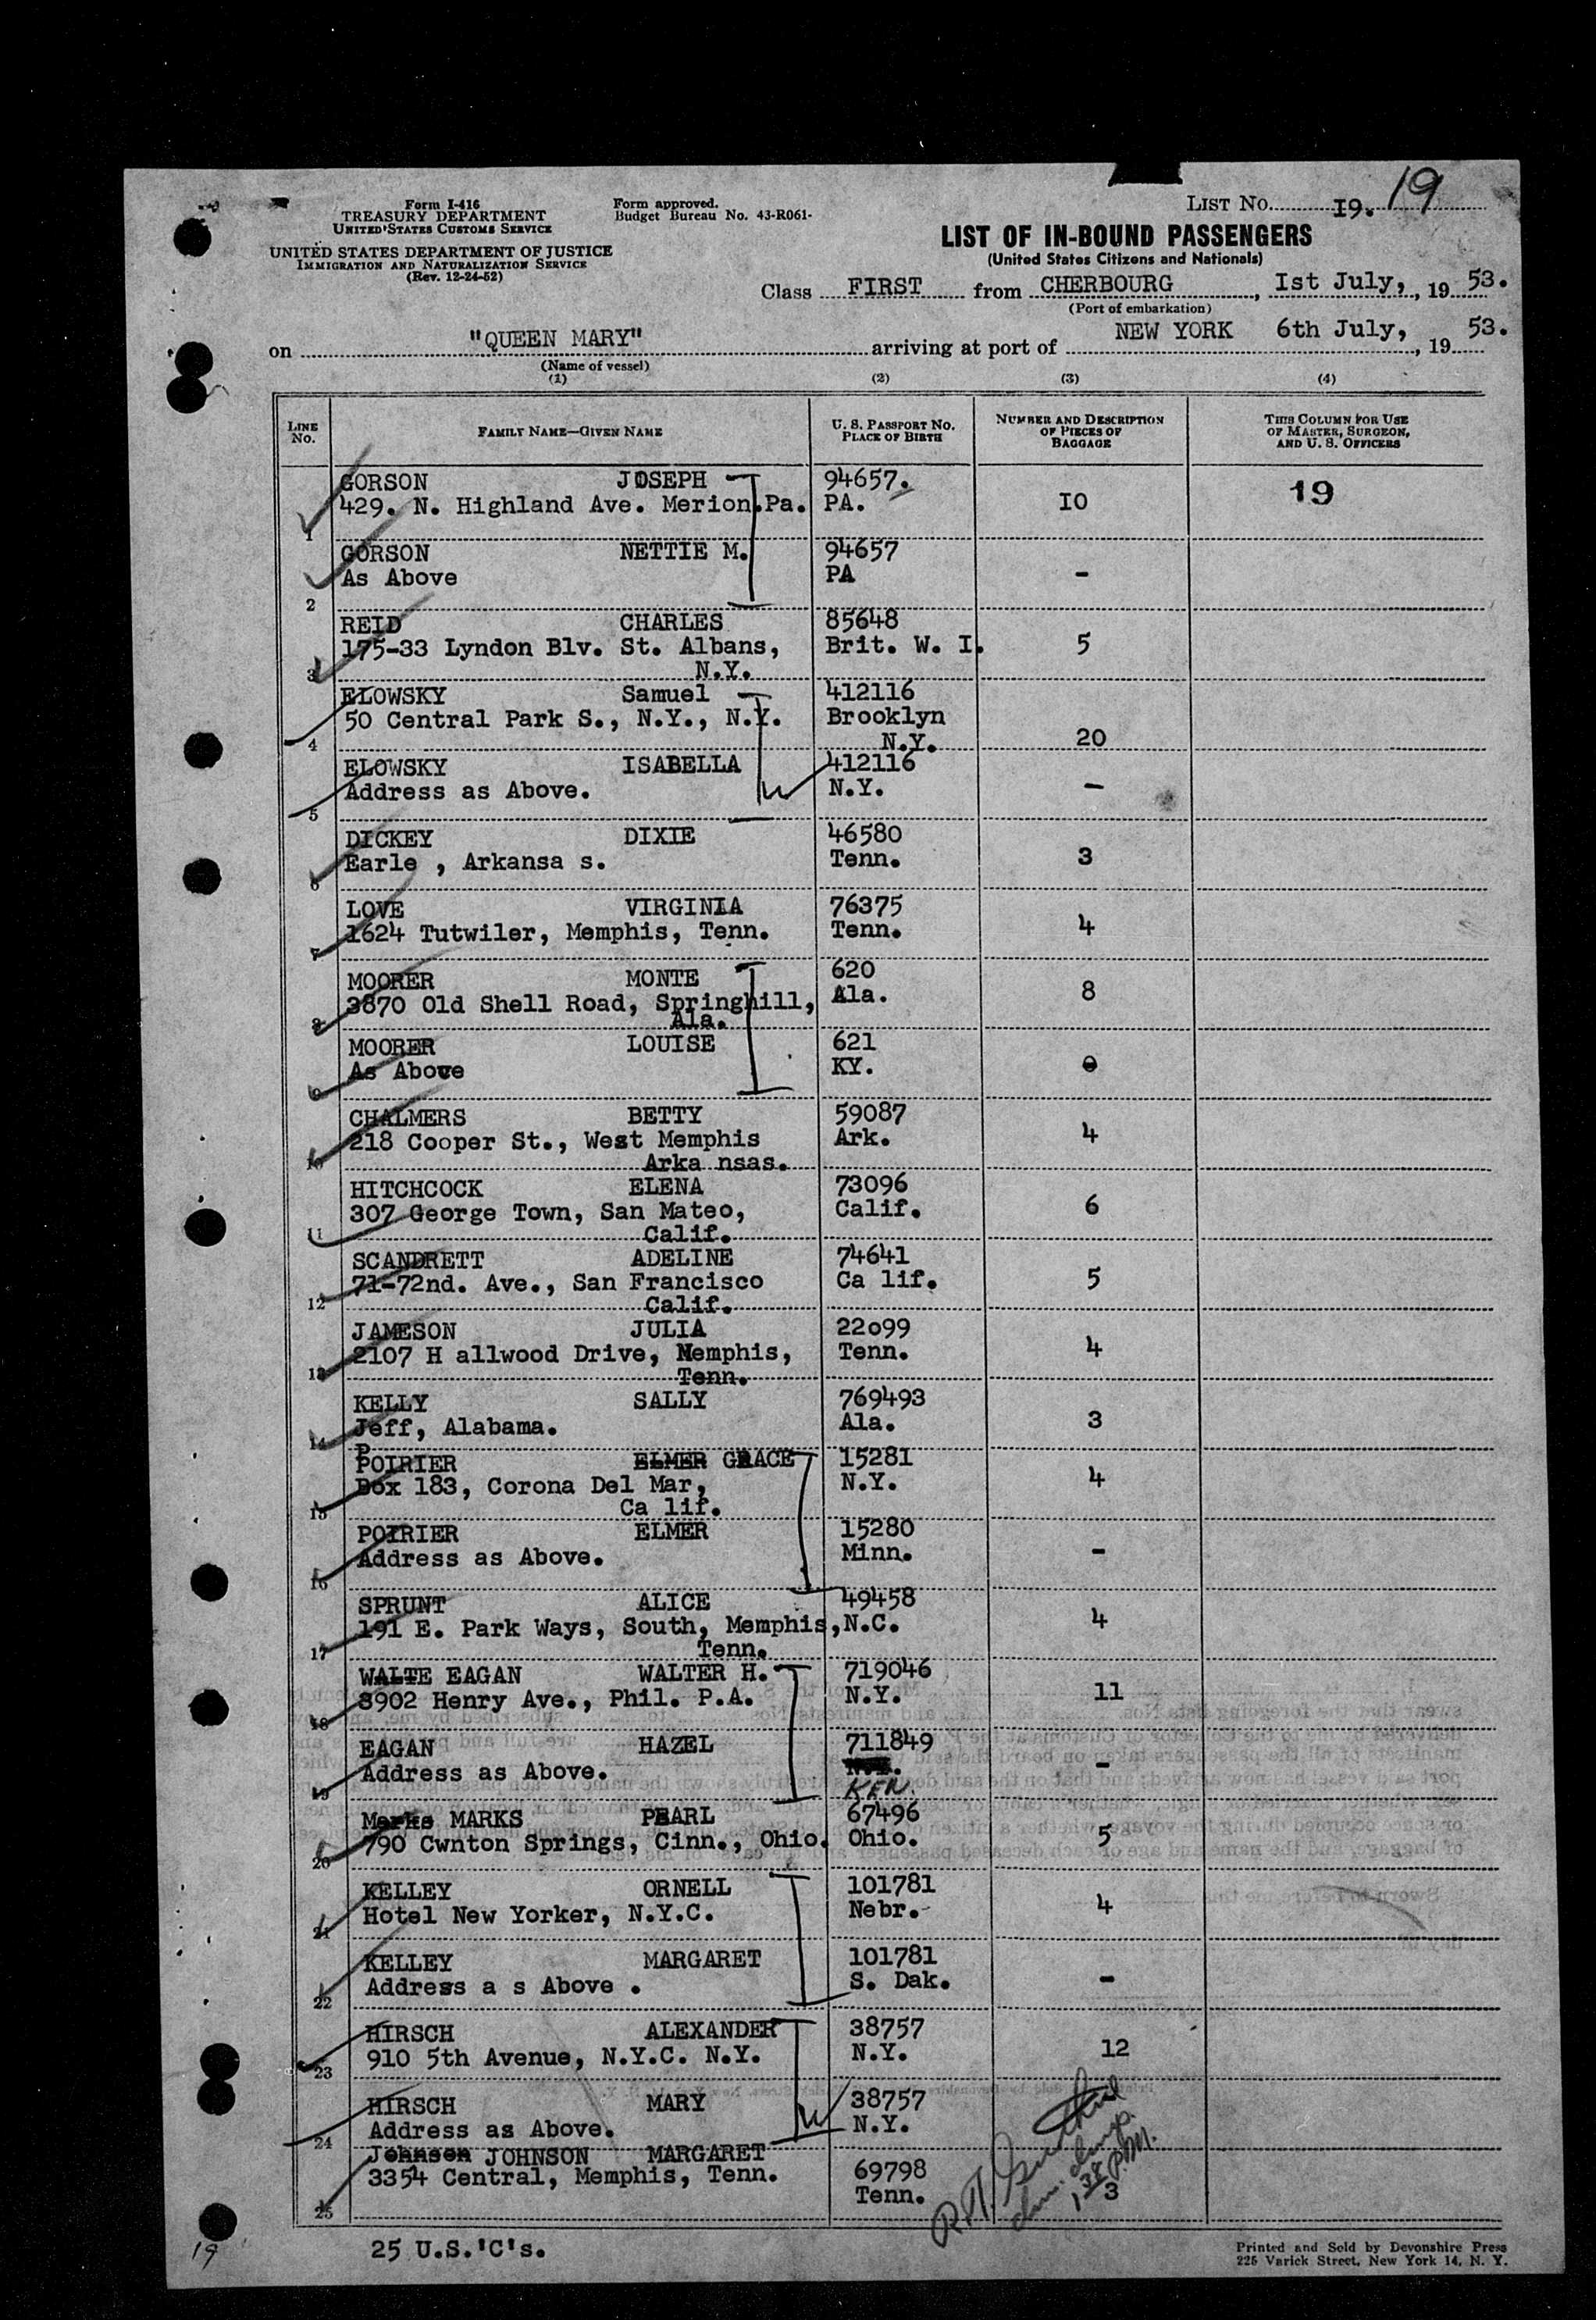 Form I-416
TREASURY DEPARTMENT
UNITED STATES CUSTOMS SERVICE
UNITED STATES DEPARTMENT OF JUSTICE
IMMIGRATION AND NATURALIZATION SERVICE
(Rev. 12-24-52)
Form approved.
Budget Bureau No. 43-R061-
LIST No. I9. 19
LIST OF IN-BOUND PASSENGERS
(United States Citizens and Nationals)
Class FIRST from CHERBOURG, Ist July, 19 53.
(Port of embarkation)
on "QUEEN MARY" arriving at port of NEW YORK 6th July, 19 53.
(Name of vessel)
(1) (2) (3) (4)
LINE No. FAMILY NAME—GIVEN NAME U. S. PASSPORT NO. PLACE OF BIRTH NUMBER AND DESCRIPTION OF PIECES OF BAGGAGE THIS COLUMN FOR USE OF MASTER, SURGEON, AND U. S. OFFICERS
GORSON JOSEPH 94657.
429. N. Highland Ave. Merion.Pa. PA. IO 19
1
GORSON NETTIE M. 94657
As Above PA -
2
REID CHARLES 85648
175-33 Lyndon Blv. St. Albans, Brit. W. I. 5
3 N.Y.
ELOWSKY Samuel 412116
50 Central Park S., N.Y., N.Y. Brooklyn
4 N.Y. 20
ELOWSKY ISABELLA 412116
Address as Above. N.Y. -
5
DICKEY DIXIE 46580
Earle , Arkansa s. Tenn. 3
6
LOVE VIRGINIA 76375
1624 Tutwiler, Memphis, Tenn. Tenn. 4
7
MOORER MONTE 620
3870 Old Shell Road, Springhill, Ala. 8
8 Ala.
MOORER LOUISE 621
As Above KY.
9
CHALMERS BETTY 59087
218 Cooper St., West Memphis Ark. 4
10 Arka nsas.
HITCHCOCK ELENA 73096
307 George Town, San Mateo, Calif. 6
11 Calif.
SCANDRETT ADELINE 74641
71-72nd. Ave., San Francisco Ca lif. 5
12 Calif.
JAMESON JULIA 22o99
2107 H allwood Drive, Memphis, Tenn. 4
13 Tenn.
KELLY SALLY 769493
Jeff, Alabama. Ala. 3
14
P
POIRIER ELMER GRACE 15281
Box 183, Corona Del Mar, N.Y. 4
15 Ca lif.
POIRIER ELMER 15280
Address as Above. Minn. -
16
SPRUNT ALICE 49458
191 E. Park Ways, South, Memphis, N.C. 4
17 Tenn.
WALTE EAGAN WALTER H. 719046
3902 Henry Ave., Phil. P.A. N.Y. 11
18
EAGAN HAZEL 711849
Address as Above. -
19 KEN.
Marks MARKS PEARL 67496
790 Cwnton Springs, Cinn., Ohio. Ohio. 5
20
KELLEY ORNELL 101781
Hotel New Yorker, N.Y.C. Nebr. 4
21
KELLEY MARGARET 101781
Address a s Above . S. Dak. -
22
HIRSCH ALEXANDER 38757
910 5th Avenue, N.Y.C. N.Y. N.Y. 12
23
HIRSCH MARY 38757
Address as Above. N.Y.
24
Johnson JOHNSON MARGARET
3354 Central, Memphis, Tenn. 69798
Tenn. 3
25
25 U.S.'C's.
19
Printed and Sold by Devonshire Press
225 Varick Street, New York 14, N. Y.